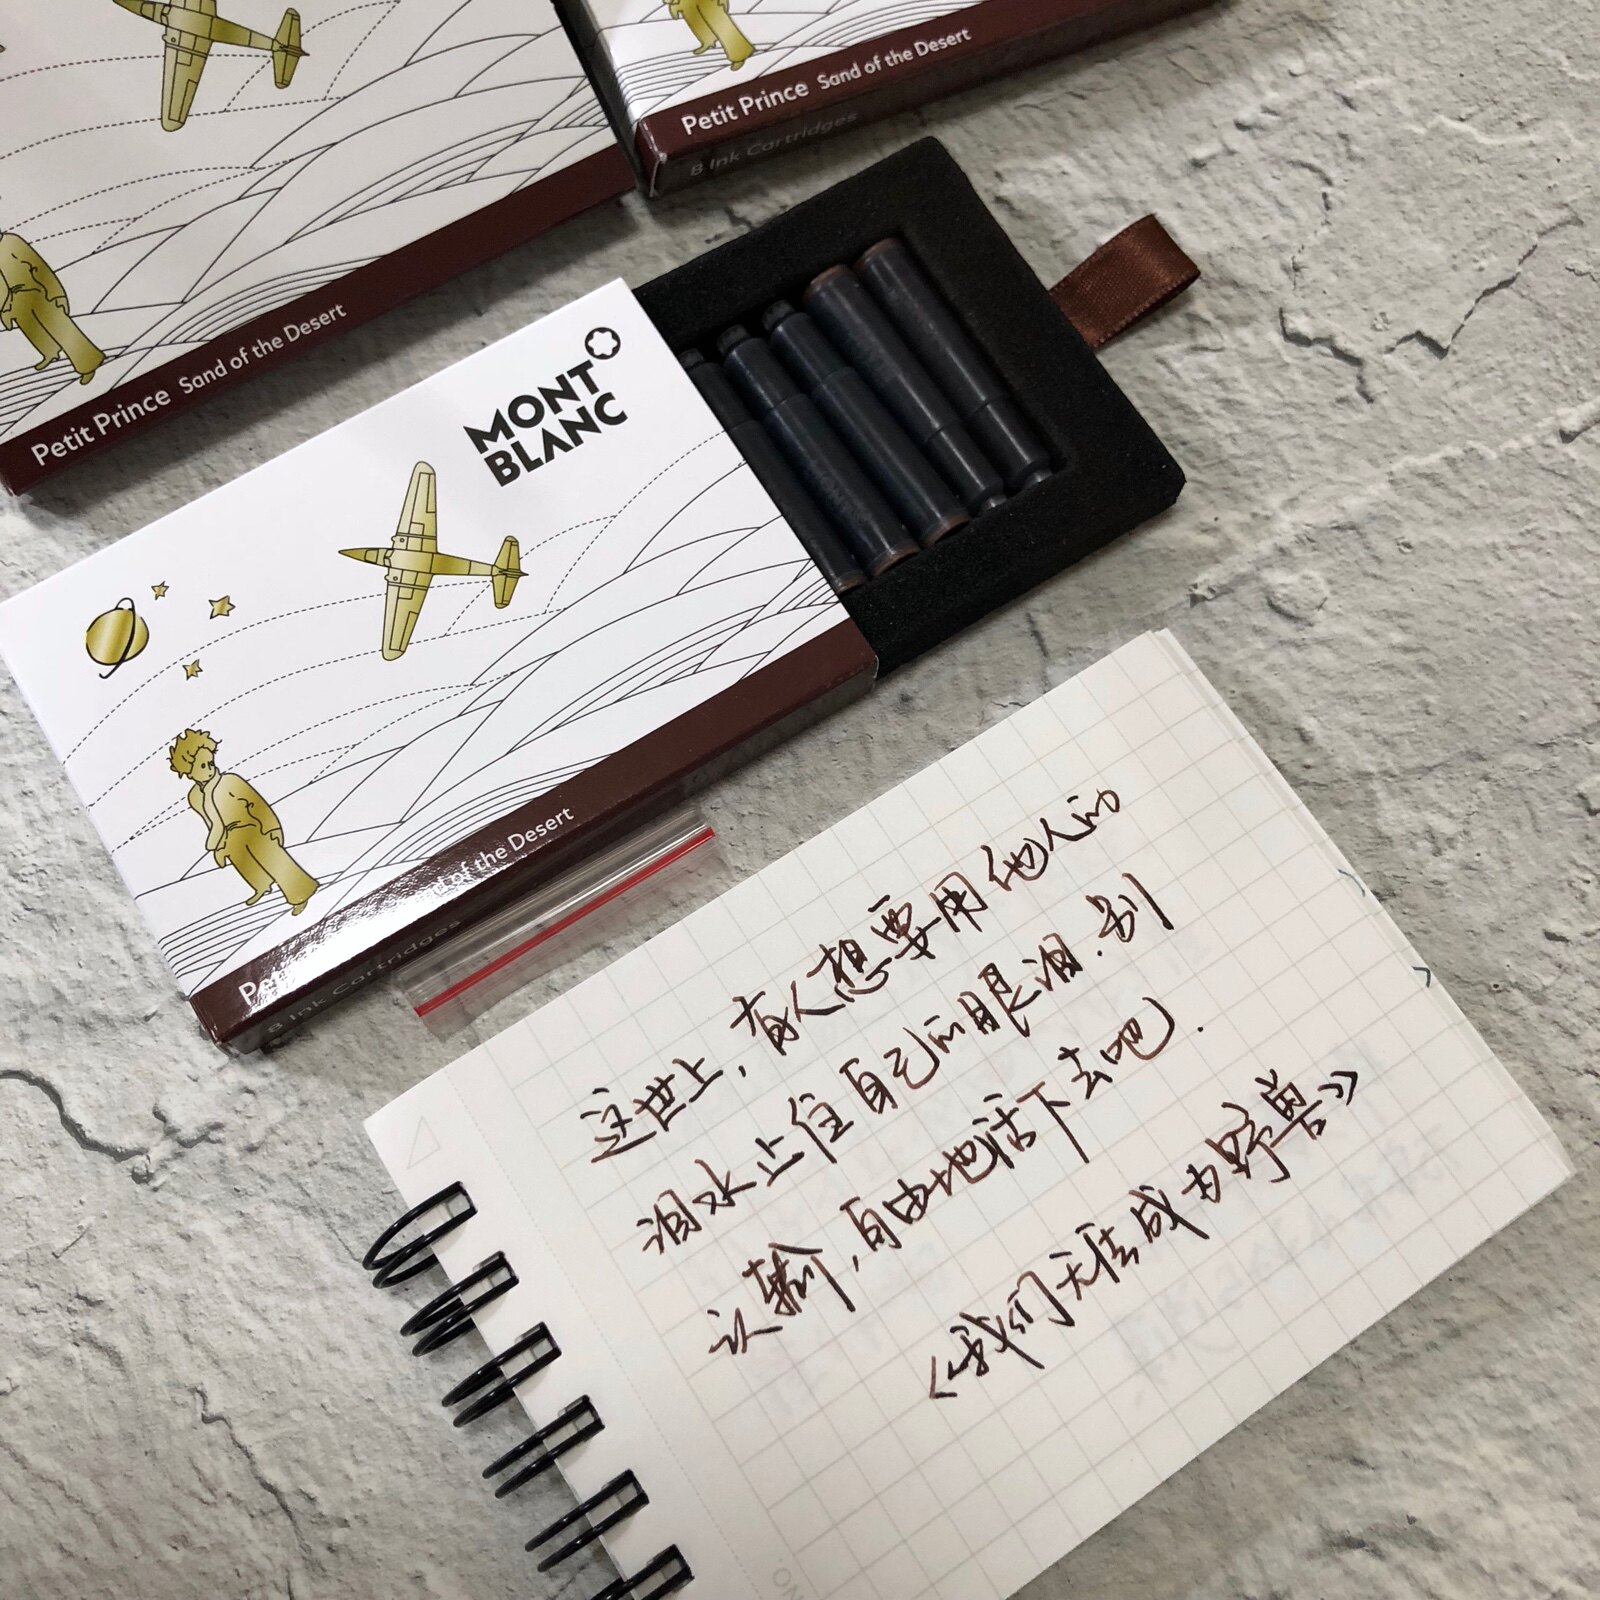 Petit Prince Sand of the Desert
8 Ink Cartridges
Petit Prince Sand of the Desert
MONT
BLANC
of the Desert
8 Ink Cartridges
这世上，有人想要用他人的
泪水止住自己的眼泪.别
认输，自由地活下去吧.
《我们无法成为野兽》